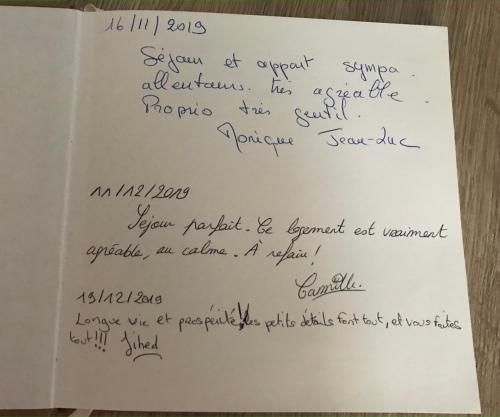 16/11/2019
Séjour et appart sympa.
allentours très agréable.
Proprio très gentil.
Monique Jean-Luc
11/12/2019
Séjour parfait. Ce logement est vraiment
agréable, au calme. À refaire!
Camille.
19/12/2019
Longue vie et prospérité! les petits détails font tout, et vous faites
tout!!! Jihed